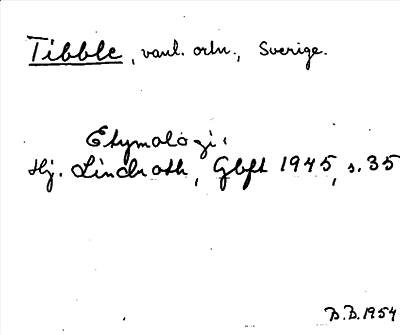 Tibble, vanl. ortn., Sverige.
Etymologi:
Hj. Lindroth, Gbft 1945, s. 35
B.B. 1954